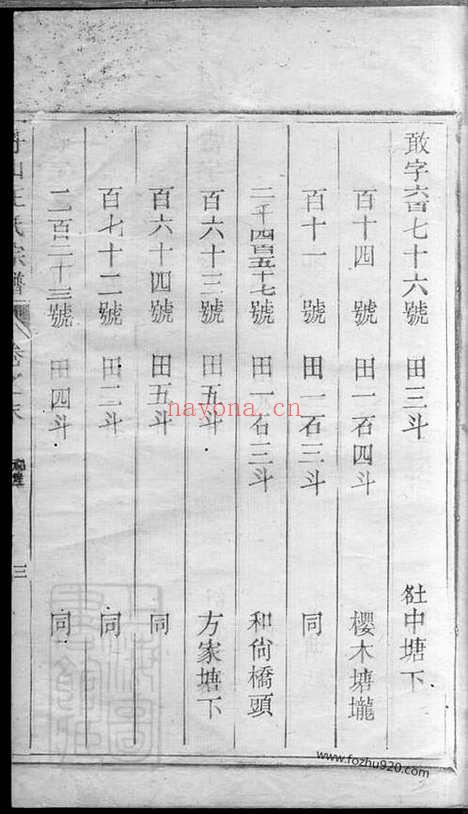 敢字六百七十六號 田三斗 社中塘下
百十四號 田一石四斗 櫻木塘壠
百十一號 田一石三斗 同
二千四百五十七號 田一石三斗 和尙橋頭
百六十三號 田五斗 方家塘下
百六十四號 田五斗 同
百七十二號 田二斗 同
二百二十三號 田四斗 同
山王氏宗譜 卷之末 三
nayona.cn
www.fozhu920.com